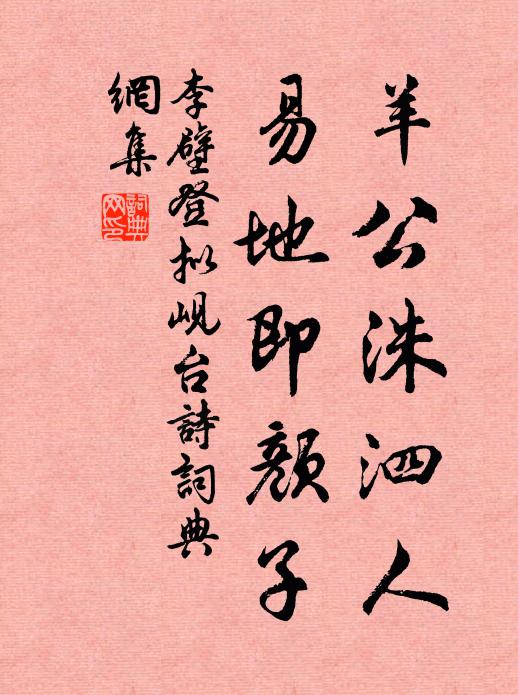 羊公洙泗人
易地即顏子
李壁登拟峴台詩詞典
網集
詞典
网印